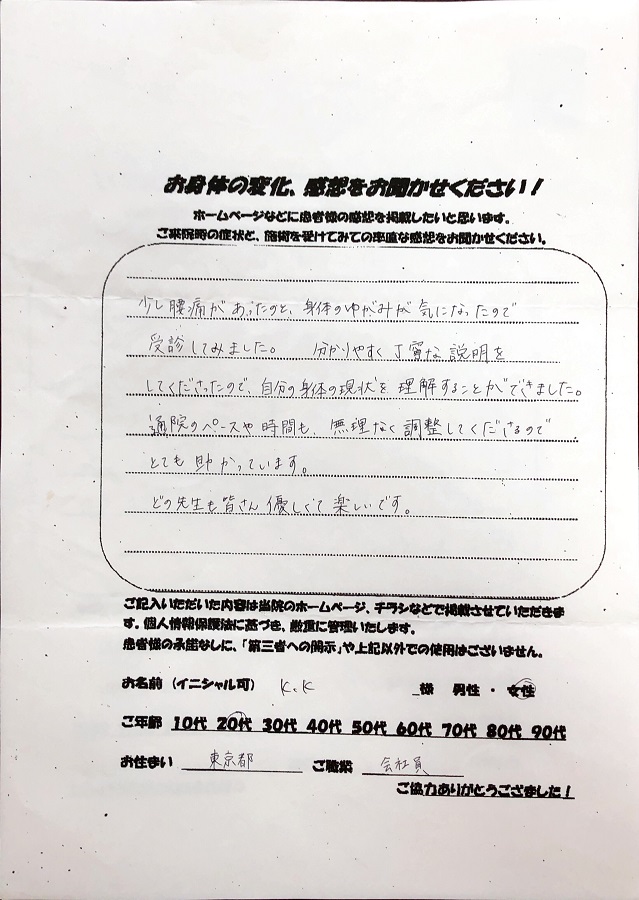 お身体の変化、感想をお聞かせください！
ホームページなどに患者様の感想を掲載したいと思います。
ご来院時の症状と、施術を受けてみての率直な感想をお聞かせください。
少し腰痛があったのと、身体のゆがみが気になったので
受診してみました。 分かりやすく丁寧な説明を
してくださったので、自分の身体の現状を理解することができました。
通院のペースや時間も、無理なく調整してくださるので
とても助かっています。
どの先生も皆さん優しくて楽しいです。
ご記入いただいた内容は当院のホームページ、チラシなどで掲載させていただきま
す。個人情報保護法に基づき、厳重に管理いたします。
患者様の承諾なしに、「第三者への開示」や上記以外での使用はございません。
お名前（イニシャル可） K.K 様 男性・女性
ご年齢 10代 20代 30代 40代 50代 60代 70代 80代 90代
お住まい 東京都 ご職業 会社員
ご協力ありがとうございました！